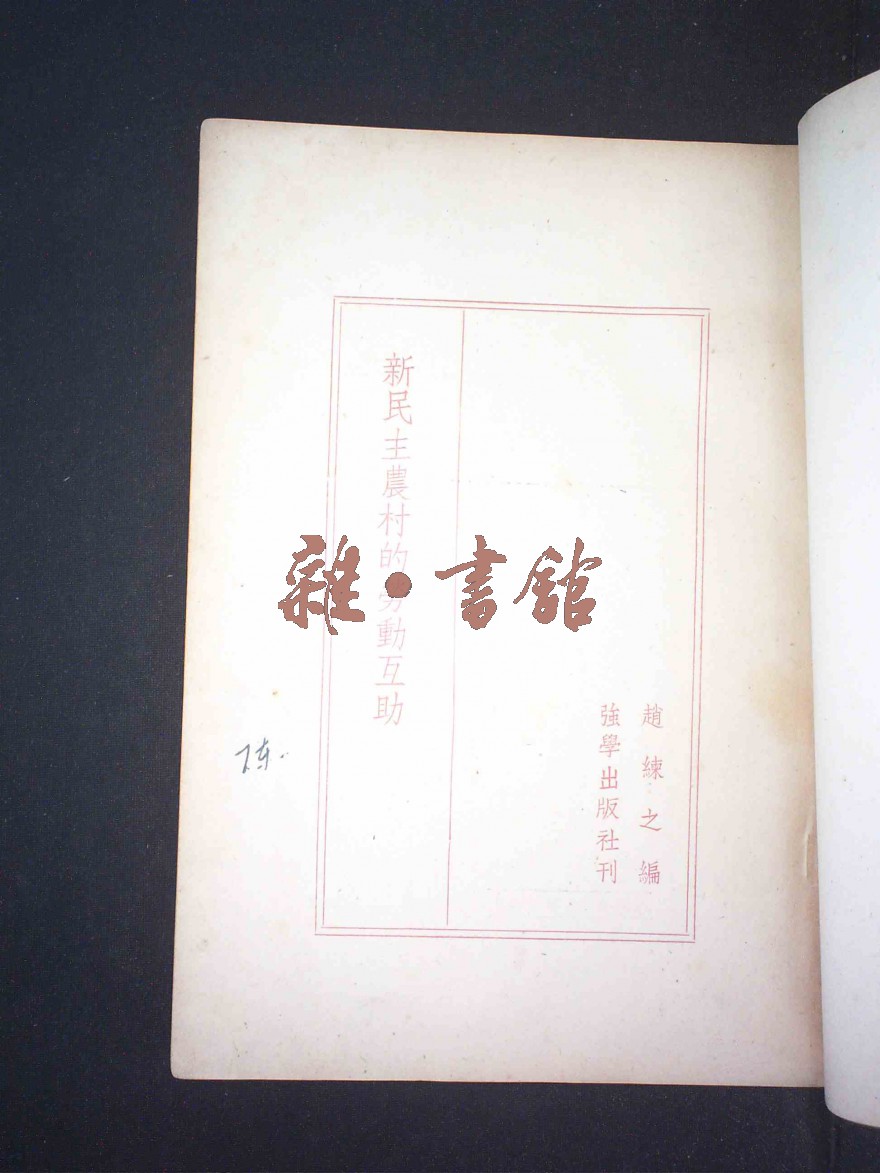 趙練之編
強學出版社刊
新民主農村的勞動互助
雜·書館
陈